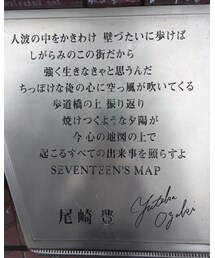 人波の中をかきわけ 壁づたいに歩けば
しがらみのこの街だから
強く生きなきゃと思うんだ
ちっぽけな俺の心に空っ風が吹いてくる
歩道橋の上 振り返り
焼けつくような夕陽が
今 心の地図の上で
起こるすべての出来事を照らすよ
SEVENTEEN'S MAP
尾崎 豊
Yutaka Ozaki